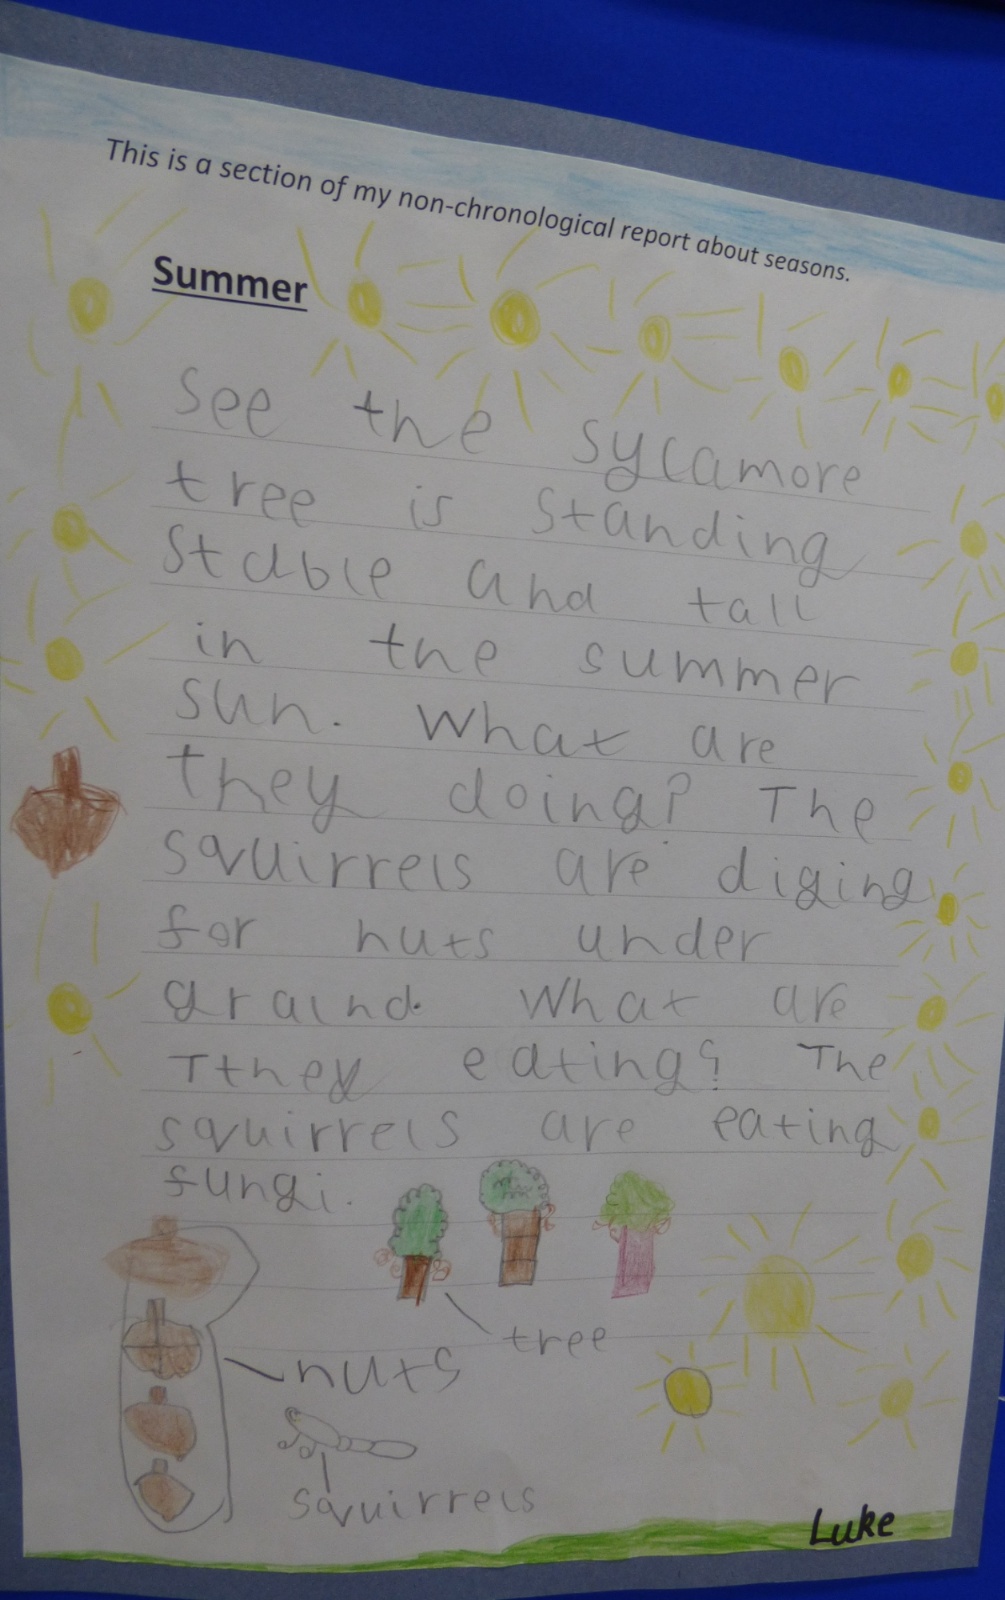 This is a section of my non-chronological report about seasons.
Summer
See the sycamore
tree is standing
stable and tall
in the summer
sun. What are
they doing? The
squirrels are diging
for nuts under
graind. What are
Tthey eating? The
squirrels are eating
fungi.
tree
nuts
squirrels
Luke